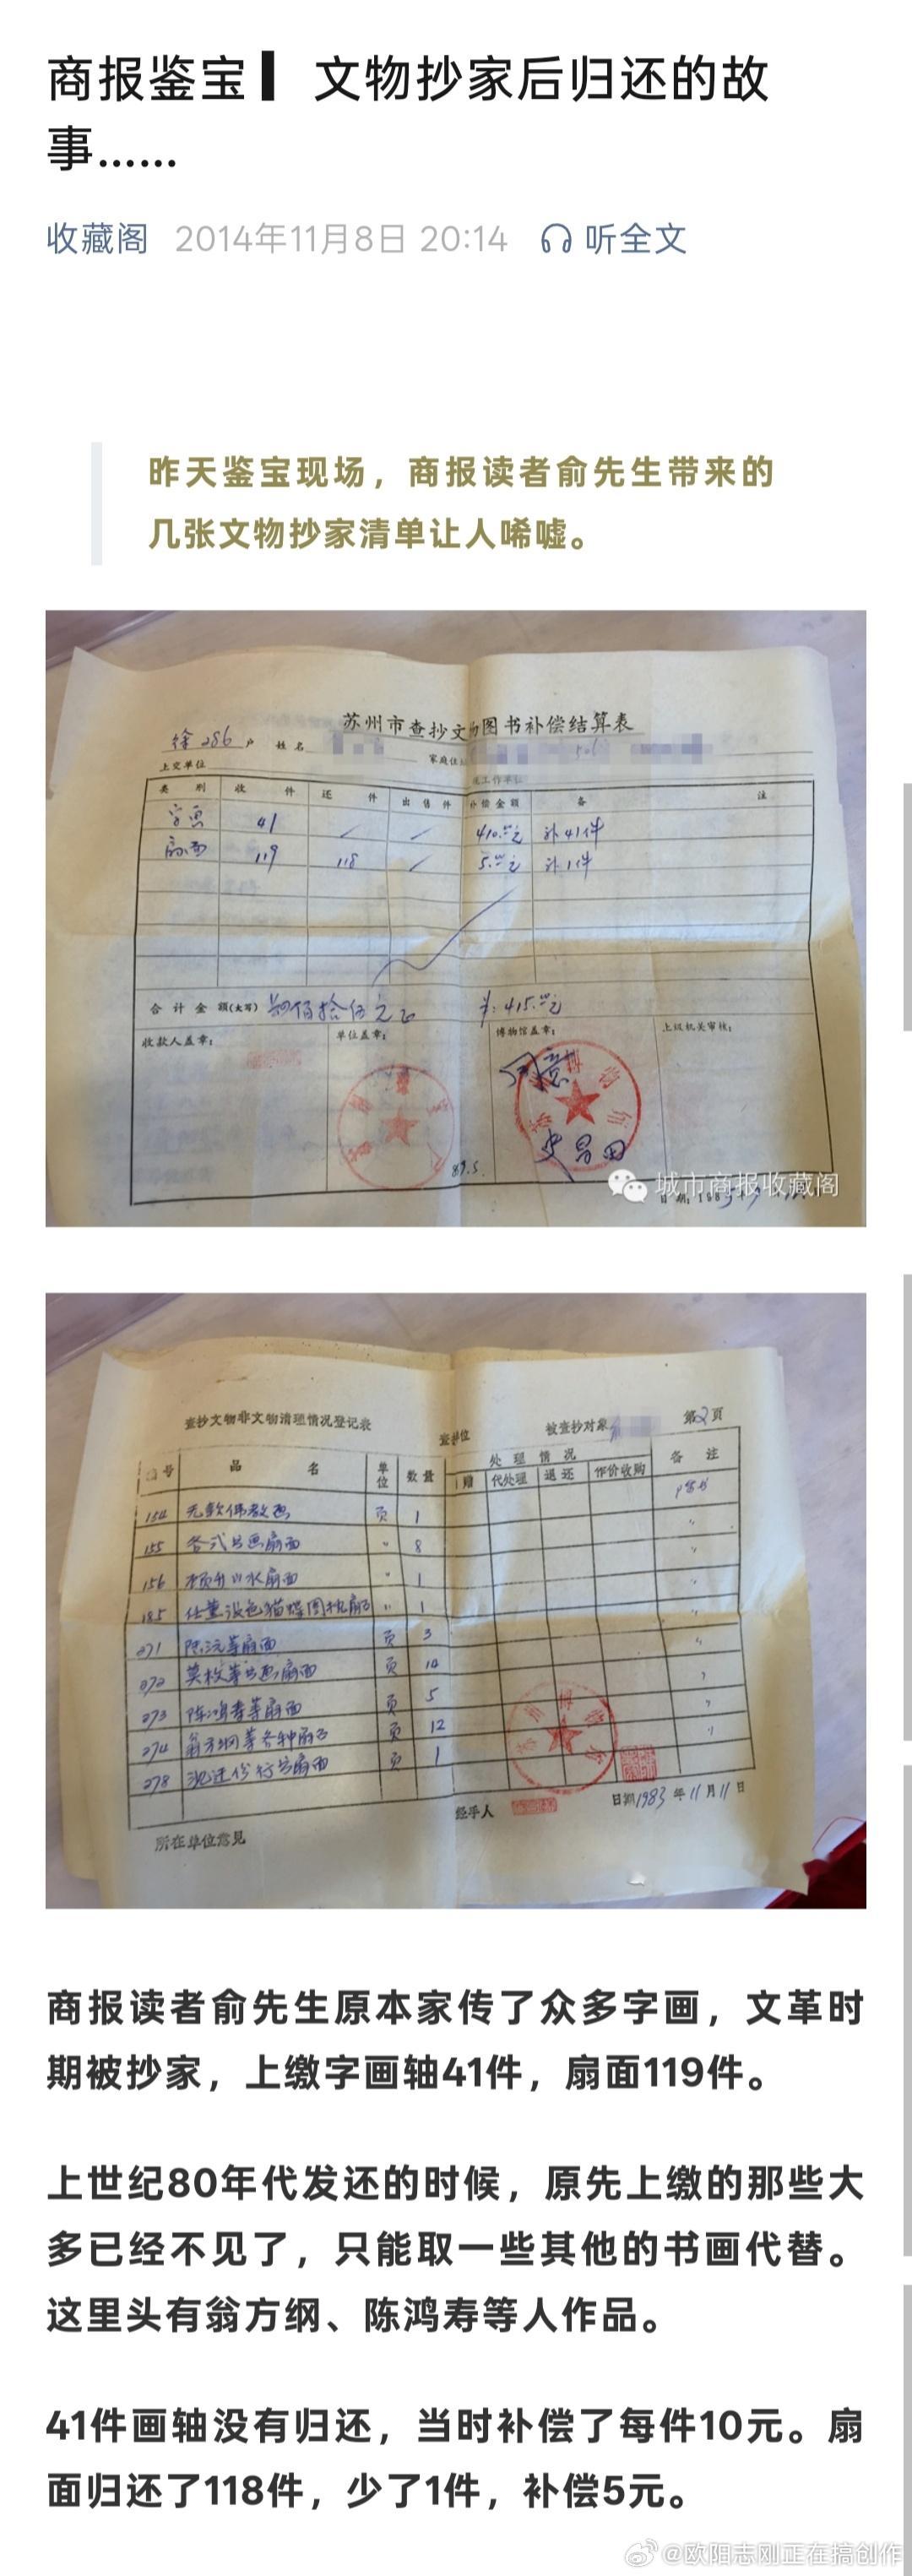 商报鉴宝 ▎ 文物抄家后归还的故
事……
收藏阁 2014年11月8日 20:14 听全文
昨天鉴宝现场，商报读者俞先生带来的
几张文物抄家清单让人唏嘘。
苏州市查抄文物图书补偿结算表
徐286户 姓名 家庭住
上交单位 工作单位
类别 收件 还件 出售件 补偿金额 备注
字画 41 410.00元 补41件
扇面 119 118 5.00元 补1件
合计金额(大写) 肆佰拾伍元 415.00元
收款人盖章： 单位盖章： 博物馆盖章： 上级机关审核：
同意
城市商报收藏阁
查抄文物非文物清理情况登记表
被查抄对象 第2页
编号 品名 单位 数量 处理情况 备注
代处理 退还 作价收购
154 无款佛教画 页 1
155 各式书画扇面 〃 8 〃
156 山水扇面 〃 1 〃
185 任薰设色猫蝶图扇面 〃 1 〃
271 陈沅等扇面 页 3 〃
272 莫枚等书画扇面 页 14 〃
273 陈鸿寿等扇面 页 5 〃
274 翁方纲等各种扇面 页 12 〃
278 行书扇面 页 1
经手人 日期1983年11月11日
所在单位意见
商报读者俞先生原本家传了众多字画，文革时
期被抄家，上缴字画轴41件，扇面119件。
上世纪80年代发还的时候，原先上缴的那些大
多已经不见了，只能取一些其他的书画代替。
这里头有翁方纲、陈鸿寿等人作品。
41件画轴没有归还，当时补偿了每件10元。扇
面归还了118件，少了1件，补偿5元。
@欧阳志刚正在搞创作